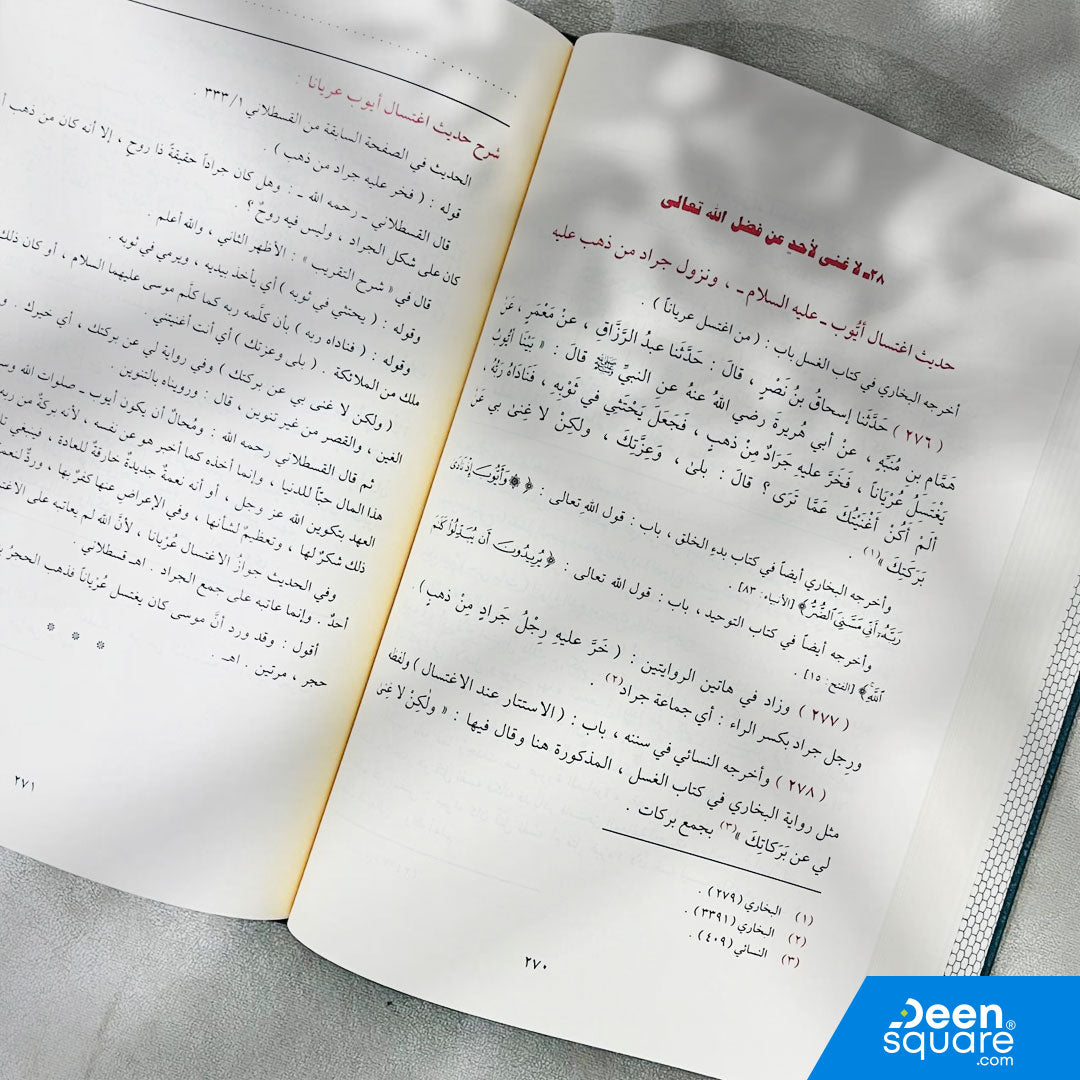 ٢٨ـ لا غنى لأحدٍ عن فضل الله تعالى
حديث اغتسال أيُّوب ـ عليه السلام ـ ، ونزول جراد من ذهب عليه
أخرجه البخاري في كتاب الغسل باب : ( من اغتسل عرياناً ) .
( ٢٧٦ ) حَدَّثَنا إسحاقُ بنُ نَصْرٍ ، قالَ : حَدَّثَنا عبدُ الرَّزَّاقِ ، عنْ مَعْمَرٍ ، عَنْ
هَمَّامِ بنِ مُنَبِّهٍ ، عنْ أبي هُريرةَ رضي اللهُ عنهُ عن النبيِّ ﷺ قالَ : « بَيْنَا أيُّوبُ
يَغْتَسِلُ عُرْيَاناً ، فَخَرَّ عليهِ جَرَادٌ مِنْ ذهبٍ ، فَجَعَلَ يَحْتَثِي في ثَوْبِهِ ، فَنَادَاهُ رَبُّهُ ،
أَلَمْ أَكُنْ أَغْنَيْتُكَ عَمَّا تَرَى ؟ قالَ : بلى ، وَعِزَّتِكَ ، ولكِنْ لا غِنىٰ بي عَنْ
بَرَكتِكَ »(١) .
وأخرجه البخاري أيضاً في كتاب بدءِ الخلق ، باب : قول الله تعالى : ﴿ ۞ وَأَيُّوبَ إِذْ نَادَىٰ
رَبَّهُۥٓ أَنِّي مَسَّنِيَ ٱلضُّرُّ﴾ [الأنبياء: ٨٣] .
وأخرجه أيضاً في كتاب التوحيد ، باب : قول الله تعالى : ﴿يُرِيدُونَ أَن يُبَدِّلُوا۟ كَلَٰمَ
ٱللَّهِ﴾ [الفتح: ١٥] .
( ٢٧٧ ) وزاد في هاتين الروايتين : ( خَرَّ عليهِ رِجْلُ جَرادٍ مِنْ ذهبٍ )
ورِجل جراد بكسر الراء : أي جماعة جراد(٢) .
( ٢٧٨ ) وأخرجه النسائي في سننه ، باب : ( الاستتار عند الاغتسال ) ولفظه
مثل رواية البخاري في كتاب الغسل ، المذكورة هنا وقال فيها : « ولٰكِنْ لا غِنىٰ
لي عن بَرَكَاتِكَ »(٣) بجمع بركات .
(١) البخاري (٢٧٩) .
(٢) البخاري (٣٣٩١) .
(٣) النسائي (٤٠٩) .
٢٧٠
شرح حديث اغتسال أيوب عريانا :
الحديث في الصفحة السابقة من القسطلاني ١/ ٣٣٣ .
قوله : ( فخر عليه جراد من ذهب ) .
قال القسطلاني ـ رحمه الله ـ : وهل كان جراداً حقيقةً ذا روحٍ ، إلا أنه كان من ذهب
كان على شكل الجراد ، وليس فيه روحٌ ؟ .
قال في « شرح التقريب » : الأظهر الثاني ، والله أعلم .
وقوله : ( يحتثي في ثوبه ) أي يأخذ بيديه ، ويرمي في ثوبه .
وقوله : ( فناداه ربه ) بأن كلَّمه ربه كما كلّم موسى عليهما السلام ، أو كان ذلك
ملك من الملائكة . ( بلى وعزتك ) أي أنت أغنيتني .
( ولكن لا غنى بي عن بركتك ) وفي رواية لي عن بركتك ، أي خيرك .
الغين ، والقصر من غير تنوين ، قال : ورويناه بالتنوين .
ثم قال القسطلاني رحمه الله : ومُحالٌ أن يكون أيوب ـ صلوات الله
هذا المال حبّاً للدنيا ، وإنما أخذه كما أخبر هو عن نفسه ، لأنه بركةٌ من ربه
العهد بتكوين الله عز وجل ، أو أنه نعمةٌ جديدةٌ خارقةٌ للعادة ، فينبغي
ذلك شكرٌ لها ، وتعظيمٌ لشأنها ، وفي الإعراضِ عنها كفرٌ بها ،
وفي الحديث جوازُ الاغتسال عُرْيانا ، لأنَّ الله لم يعاتبه على
أحدٌ . وإنما عاتبه على جمع الجراد . اهـ قسطلاني .
أقول : وقد ورد أنَّ موسى كان يغتسل عُرْياناً فذهب الحجرُ
حجر ، مرتين . اهـ .
* * *
٢٧١
Deen
square®
.com